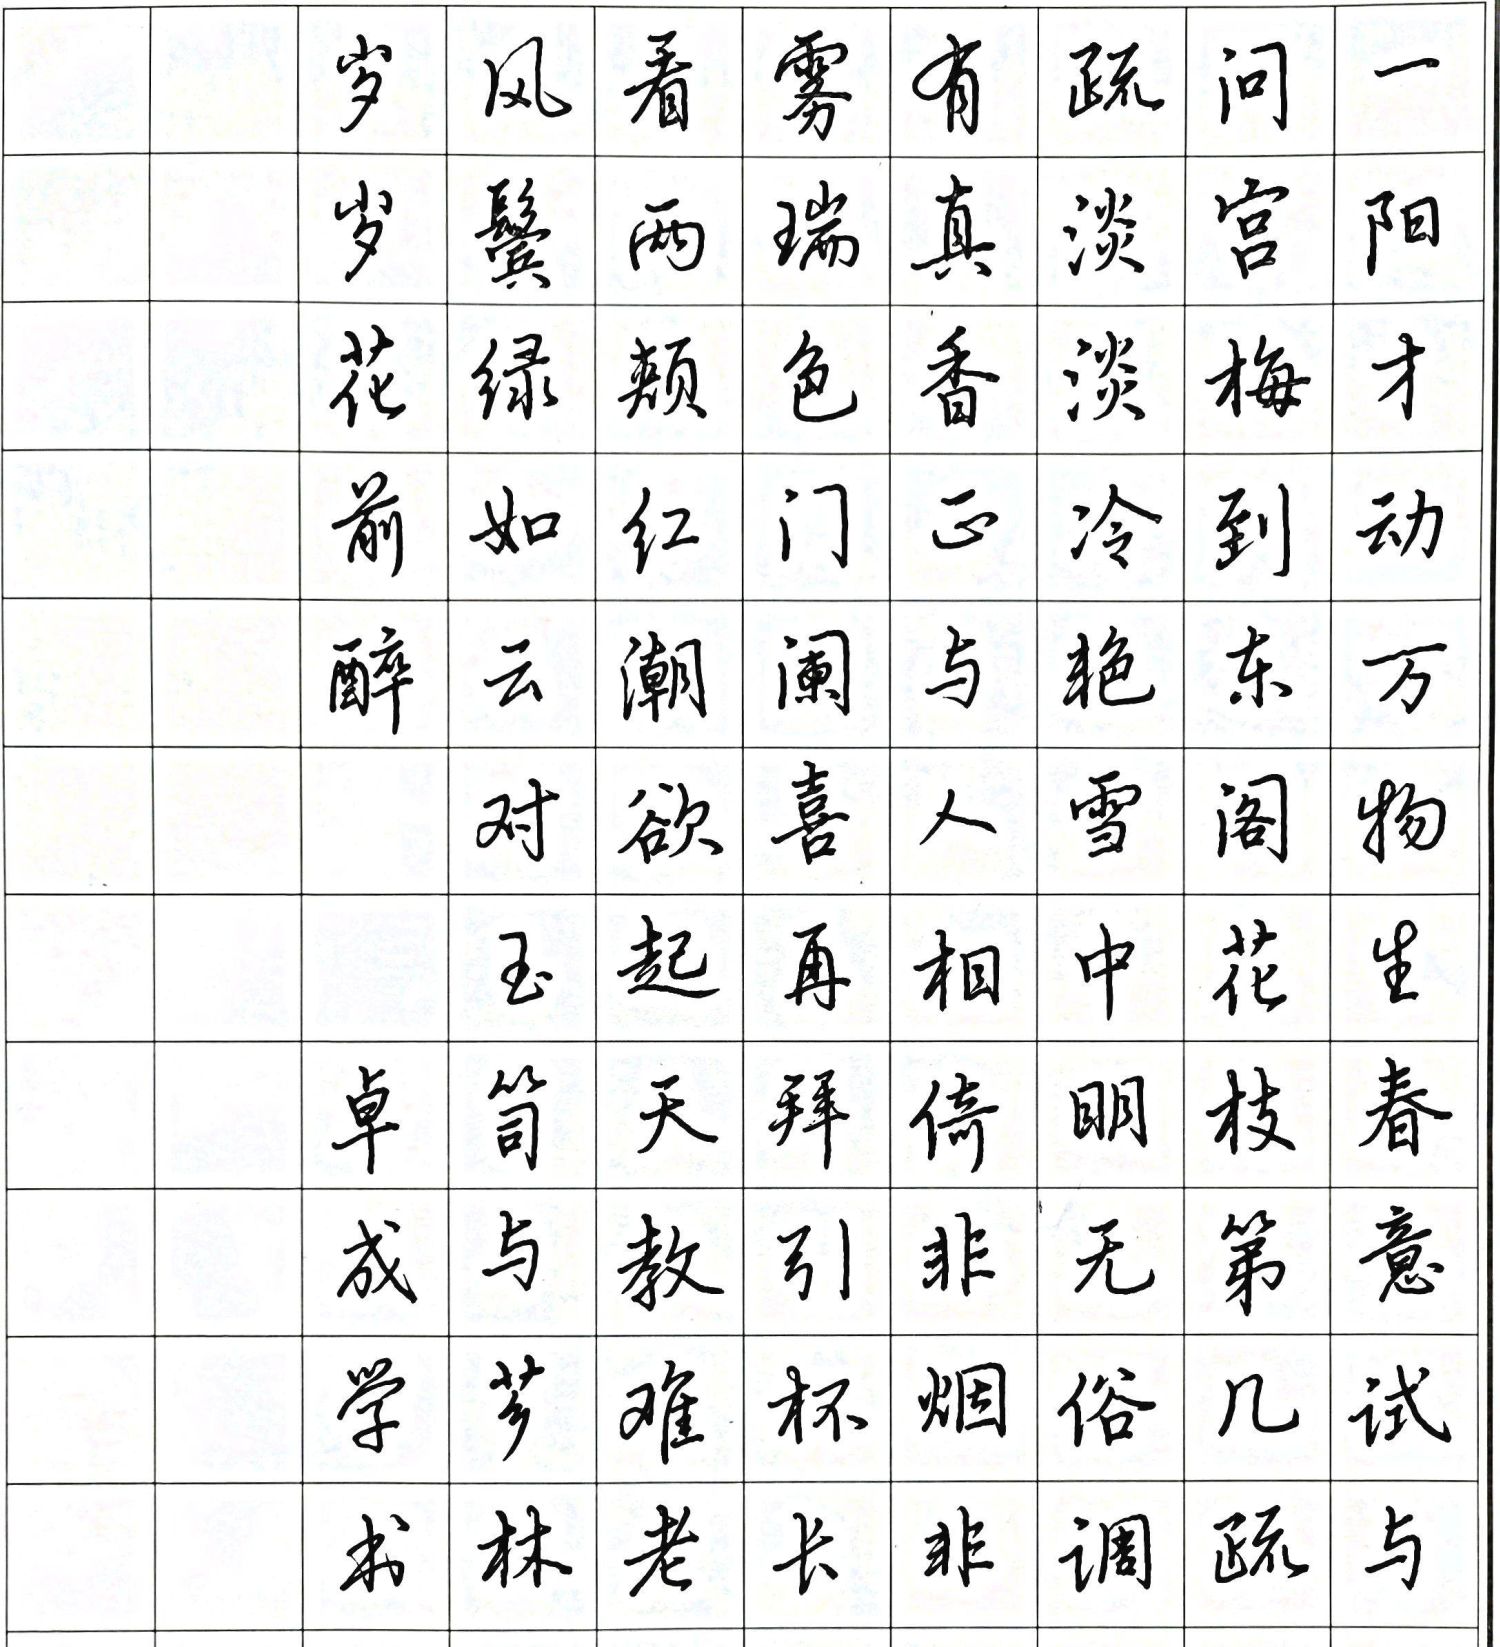 一阳才动万物生春意试与
问宫梅到东阁花枝第几疏
疏淡淡冷艳雪中明无俗调
有真香正与人相倚非烟非
雾瑞色门阑喜再拜引杯长
看两颊红潮欲起天教难老
风鬓绿如云对玉笥与芗林
岁岁花前醉卓成学书